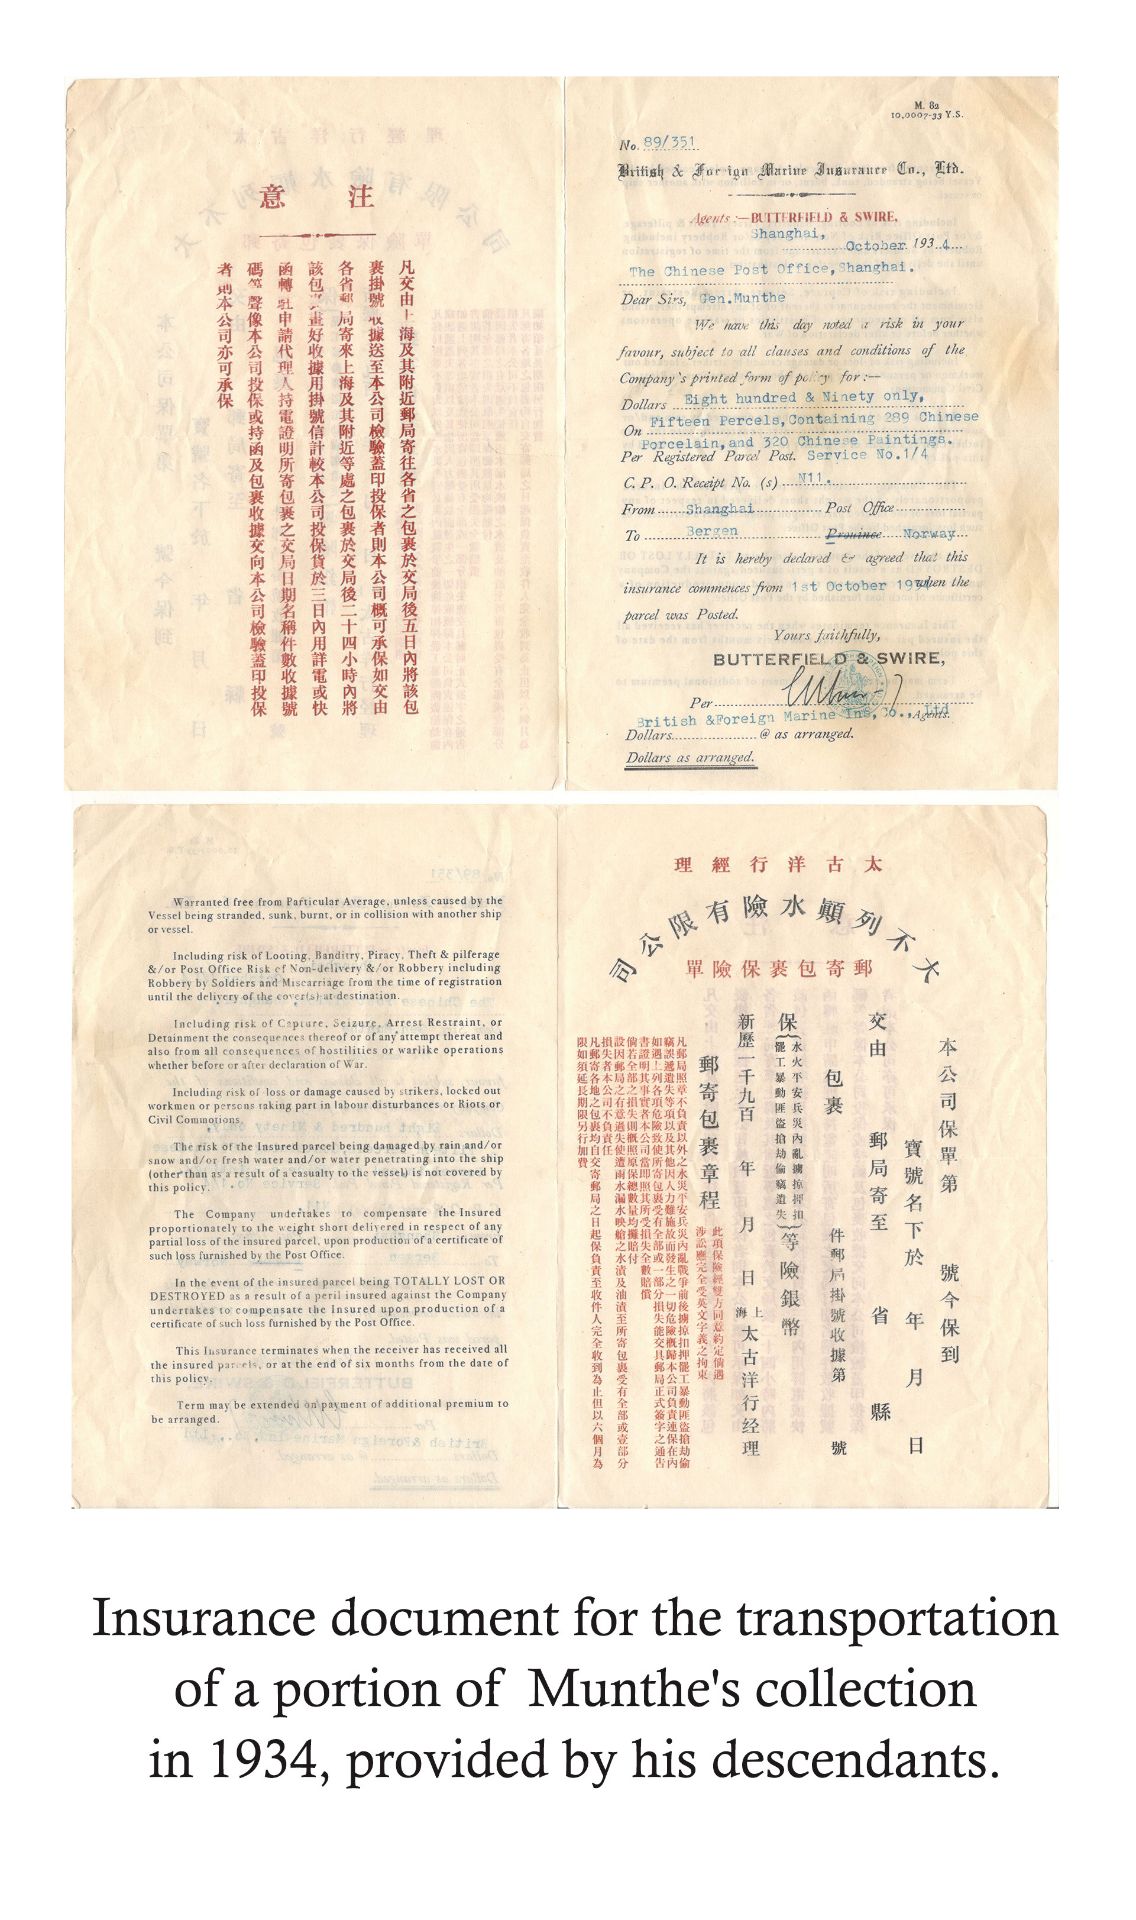 意 注
凡交由上海及其附近郵局寄往各省之包裹於交局後五日內將該包
裹掛號收據送至本公司檢驗蓋印投保者則本公司概可承保如交由
各省郵局寄來上海及其附近等處之包裹於交局後二十四小時內將
該包裹畫好收據用掛號信計較本公司投保貨於三日內用詳電或快
函轉駐申請代理人持電證明所寄包裹之交局日期名稱件數收據號
碼等聲像本公司投保或持函及包裹收據交向本公司檢驗蓋印投保
者則本公司亦可承保
M. 82
10.0007-33 Y.S.
No. 89/351
British & Foreign Marine Insurance Co., Ltd.
Agents :—BUTTERFIELD & SWIRE,
Shanghai,
October 1934
The Chinese Post Office, Shanghai.
Dear Sirs, Gen.Munthe
We have this day noted a risk in your
favour, subject to all clauses and conditions of the
Company's printed form of policy for :—
Dollars Eight hundred & Ninety only,
On Fifteen Percels,Containing 289 Chinese
Porcelain,and 320 Chinese Paintings.
Per Registered Parcel Post. Service No.1/4
C. P. O. Receipt No. (s) N11.
From Shanghai Post Office
To Bergen Province Norway
It is hereby declared & agreed that this
insurance commences from 1st October 1934 when the
parcel was Posted.
Yours faithfully,
BUTTERFIELD & SWIRE,
Per
British &Foreign Marine Ins, Co.,Ltd Agents.
Dollars @ as arranged.
Dollars as arranged.
Warranted free from Particular Average, unless caused by the
Vessel being stranded, sunk, burnt, or in collision with another ship
or vessel.
Including risk of Looting, Banditry, Piracy, Theft & pilferage
&/or Post Office Risk of Non-delivery &/or Robbery including
Robbery by Soldiers and Miscarriage from the time of registration
until the delivery of the cover(s) at destination.
Including risk of Capture, Seizure, Arrest Restraint, or
Detainment the consequences thereof or of any attempt thereat and
also from all consequences of hostilities or warlike operations
whether before or after declaration of War.
Including risk of loss or damage caused by strikers, locked out
workmen or persons taking part in labour disturbances or Riots or
Civil Commotions.
The risk of the Insured parcel being damaged by rain and/or
snow and/or fresh water and/or water penetrating into the ship
(other than as a result of a casualty to the vessel) is not covered by
this policy.
The Company undertakes to compensate the Insured
proportionately to the weight short delivered in respect of any
partial loss of the insured parcel, upon production of a certificate of
such loss furnished by the Post Office.
In the event of the insured parcel being TOTALLY LOST OR
DESTROYED as a result of a peril insured against the Company
undertakes to compensate the Insured upon production of a
certificate of such loss furnished by the Post Office.
This Insurance terminates when the receiver has received all
the insured parcels, or at the end of six months from the date of
this policy.
Term may be extended on payment of additional premium to
be arranged.
理經行洋古太
司公限有險水顚列不大
單險保裹包寄郵
本公司保單第 號今保到
寶號名下於 年 月 日
交由 郵局寄至 省 縣
包裹 件郵局掛號收據第 號
保(水火平安兵災內亂擄掠押扣
罷工暴動匪盜搶劫偷竊遺失)等險銀幣
新歷一千九百 年 月 日 上海 太古洋行经理
郵寄包裹章程
此項保險經雙方同意約定倘遇
涉訟應完全受英文字義之拘束
凡郵局照章不負責以外之水災平安兵災內亂戰爭前後擄掠扣押罷工暴動匪盜搶劫偷
竊誤遞遺失等項以及其他因人力難施故而發生之一切危險概歸本公司負責連保在內
如遇上列各項危險致使所寄包裹受有全部或一部分損失能交具郵局正式簽字之通告
書證明其事實者本公司當即照其所受損失全數賠償
倘若全部之損失則概照原保總數量均攤賠付
設因郵局之有意過失使遭雨水漏水映艙之水漬及油漬至所寄包裹受有全部或壹部分
損失者本公司不負責任
凡郵寄各地之包裹均自交寄郵局之日起保負責至收件人完全收到為止但以六個月為
限如須延長期限另行加費
Insurance document for the transportation
of a portion of Munthe's collection
in 1934, provided by his descendants.